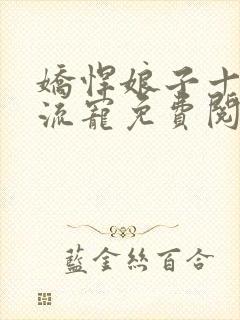 嬌悍娘子十
流寵免費閱
藍金絲百合